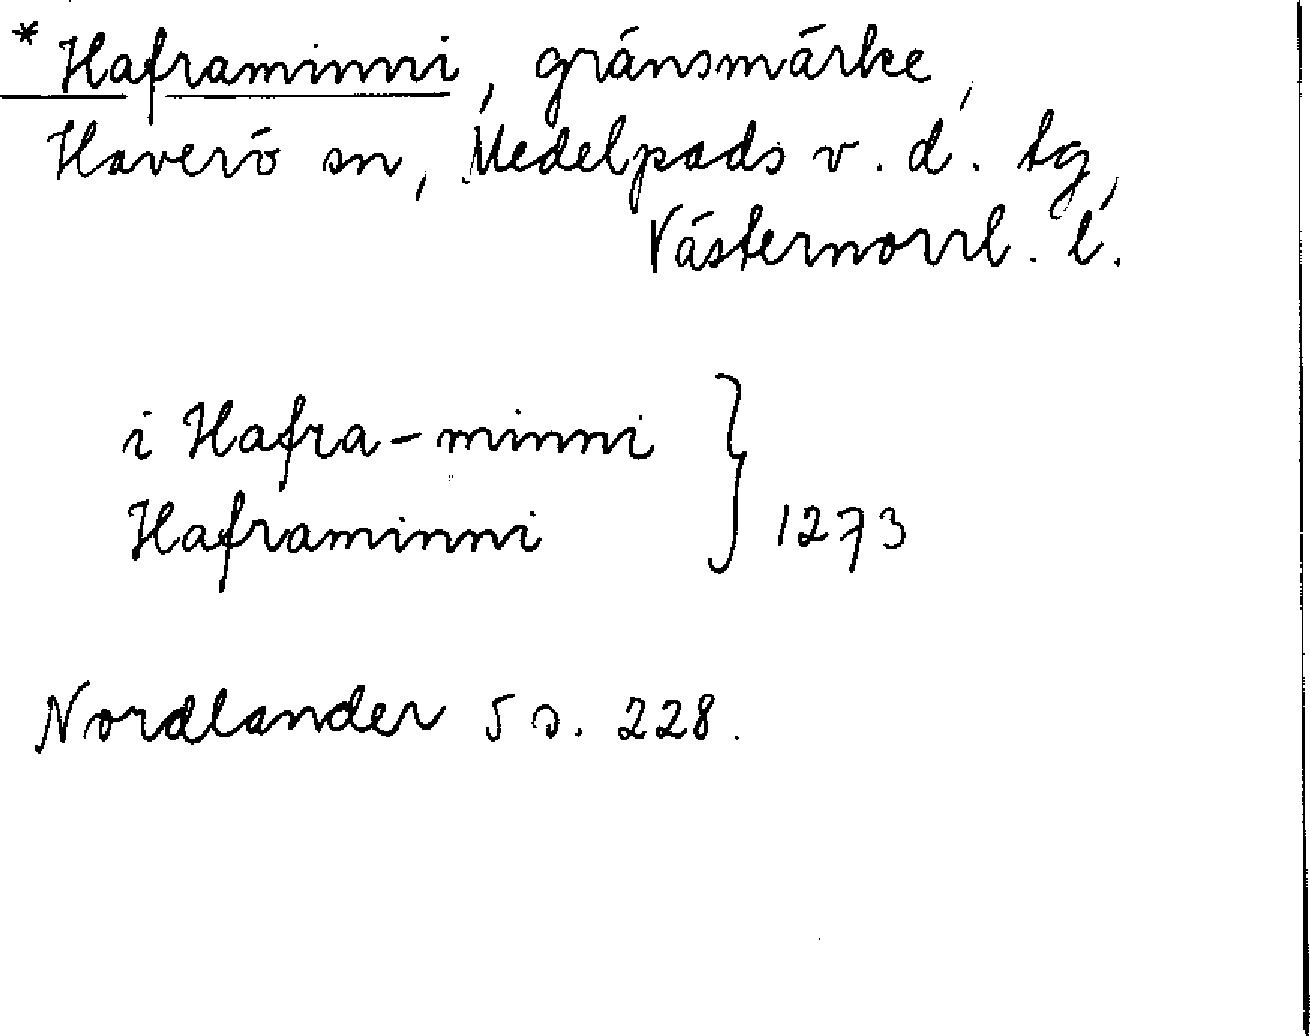 * Haframinni, gränsmärke,
Haverö sn, Medelpads v. d. tg,
Västernorrl. l.
i Hafra-minni
Haframinni } 1273
Nordlander 5 s. 228.